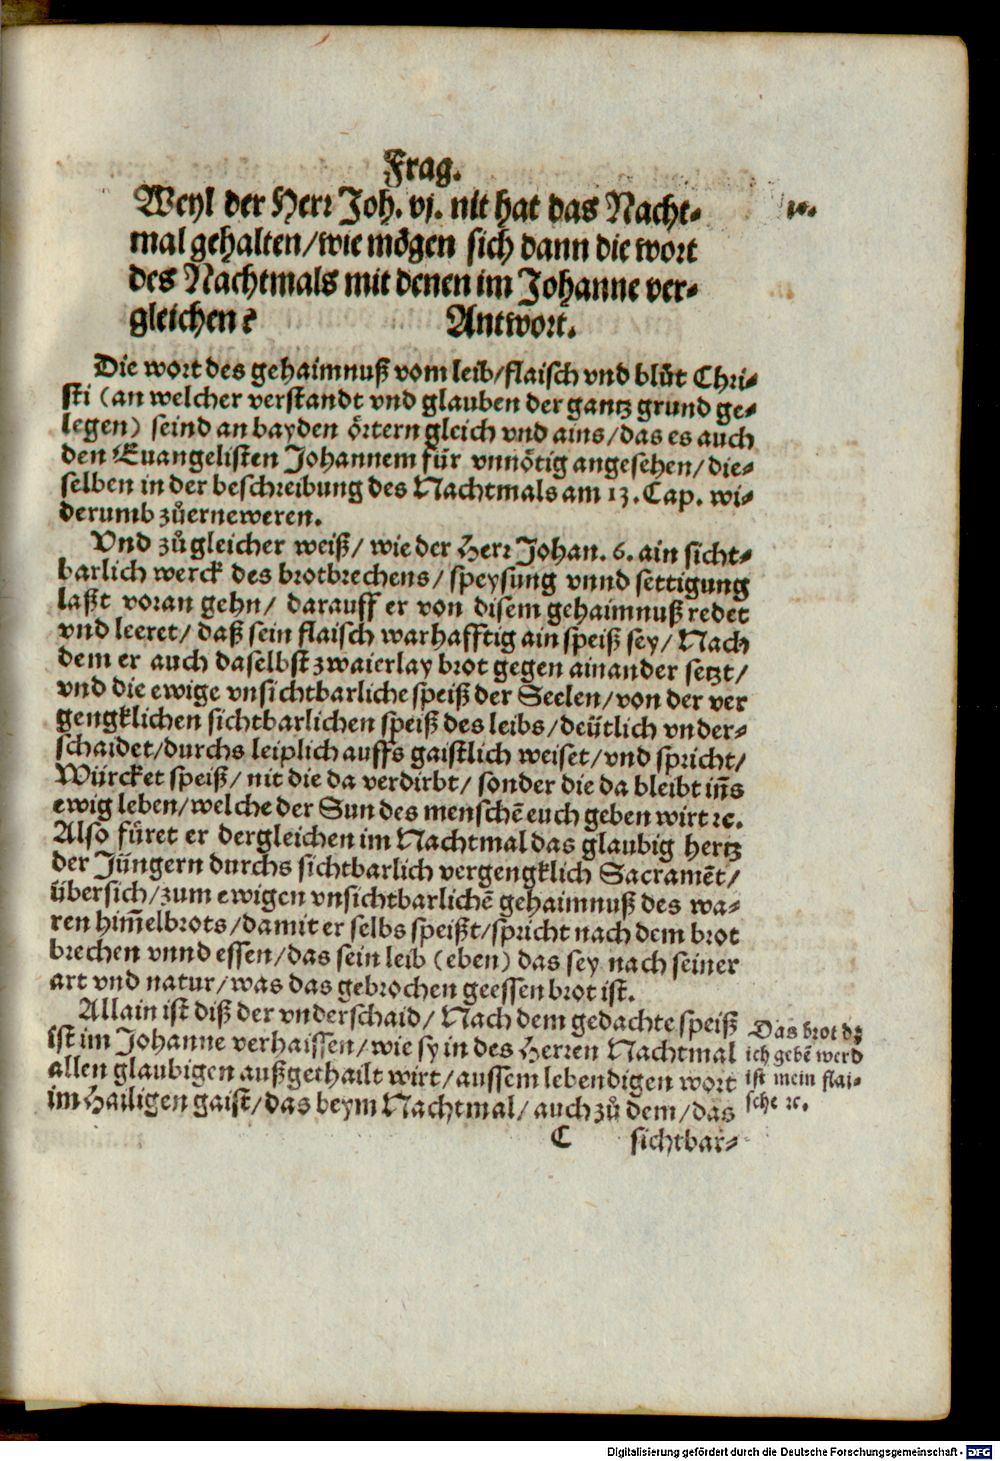 Frag.
Weyl der Herr Joh. vj. nit hat das Nacht-
mal gehalten/wie mögen sich dann die wort
des Nachtmals mit denen im Johanne ver-
gleichen?
Antwort.
Die wort des gehaimnuß vom leib/flaisch vnd blůt Chri-
sti (an welcher verstandt vnd glauben der gantz grund ge-
legen) seind an bayden örtern gleich vnd ains/das es auch
den Euangelisten Johannem für vnnötig angesehen/die-
selben in der beschreibung des Nachtmals am 13. Cap. wi-
derumb zůerneweren.
Vnd zů gleicher weiß/ wie der Herr Johan. 6. ain sicht-
barlich werck des brotbrechens/ speysung vnnd settigung
laßt voran gehn/ darauff er von disem gehaimnuß redet
vnd leeret/ daß sein flaisch warhafftig ain speiß sey/ Nach
dem er auch daselbst zwaierlay brot gegen ainander setzt/
vnd die ewige vnsichtbarliche speiß der Seelen/von der ver
gengklichen sichtbarlichen speiß des leibs/deütlich vnder-
schaidet/durchs leiplich auffs gaistlich weiset/vnd spricht/
Würcket speiß/ nit die da verdirbt/ sonder die da bleibt iñs
ewig leben/welche der Sun des menschē euch geben wirt ꝛc.
Also füret er dergleichen im Nachtmal das glaubig hertz
der Jüngern durchs sichtbarlich vergengklich Sacramēt/
übersich/zum ewigen vnsichtbarlichē gehaimnuß des wa-
ren him̃elbrots/damit er selbs speißt/spricht nach dem brot
brechen vnnd essen/das sein leib (eben) das sey nach seiner
art vnd natur/was das gebrochen geessen brot ist.
Allain ist diß der vnderschaid/ Nach dem gedachte speiß
ist im Johanne verhaissen/wie sy in des Herren Nachtmal
allen glaubigen außgethailt wirt/aussem lebendigen wort
im Hailigen gaist/das beym Nachtmal/ auch zů dem/das
Das brot dz
ich gebē werd
ist mein flai-
sche ꝛc.
C sichtbar-
Digitalisierung gefördert durch die Deutsche Forschungsgemeinschaft - DFG